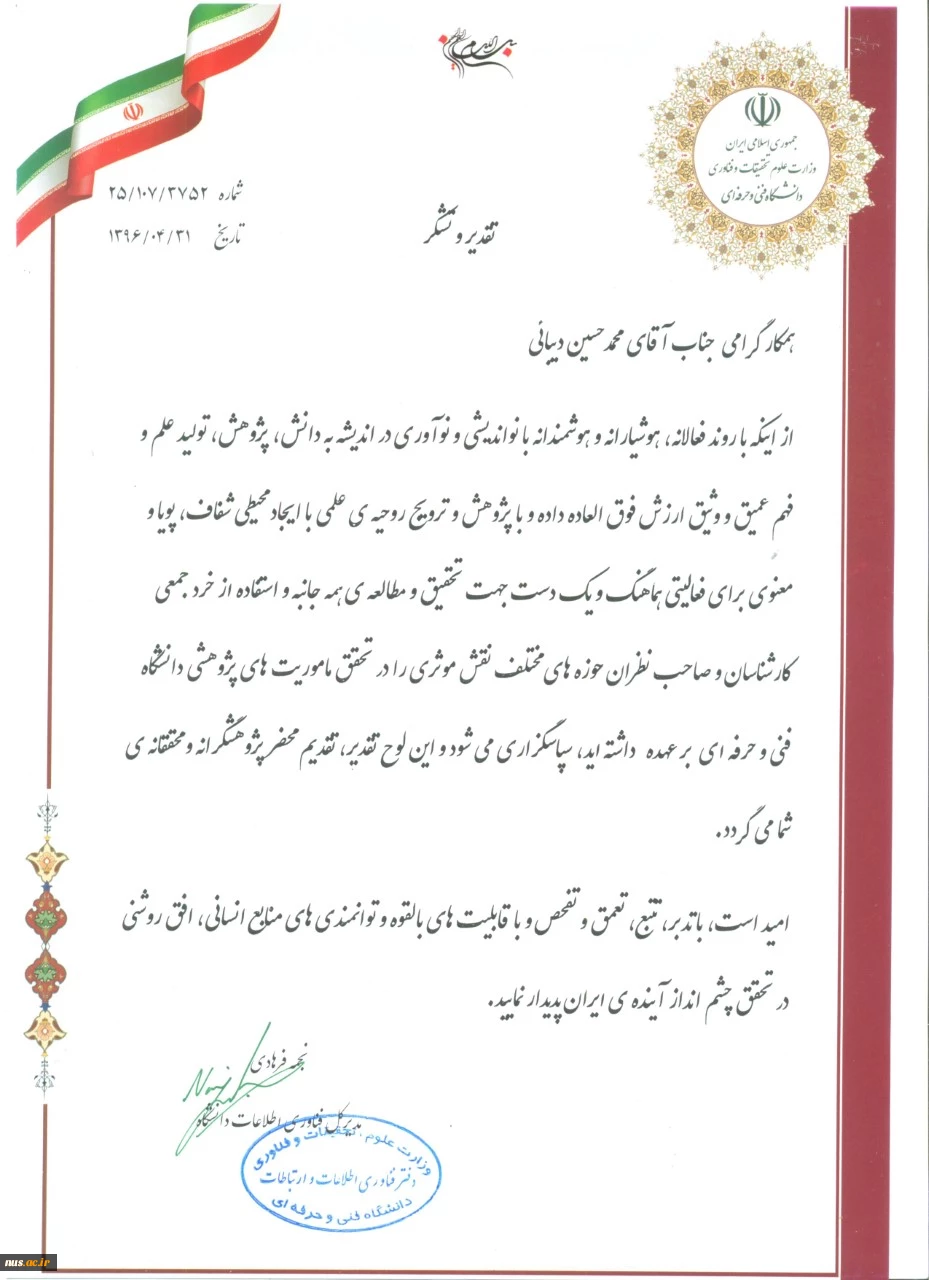 بسم الله الرحمن الرحیم
جمهوری اسلامی ایران
وزارت علوم تحقیقات و فناوری
دانشگاه فنی و حرفه ای
شماره ۲۵/۱۰۷/۳۷۵۲
تاریخ ۱۳۹۶/۰۴/۳۱
تقدیر و تشکر
همکار گرامی جناب آقای محمد حسین دیبائی
از اینکه با روند فعالانه، هوشیارانه و هوشمندانه با نواندیشی و نوآوری در اندیشه به دانش، پژوهش، تولید علم و
فهم عمیق و وثیق ارزش فوق العاده داده و با پژوهش و ترویج روحیه ی علمی با ایجاد محیطی شفاف، پویا و
معنوی برای فعالیتی هماهنگ و یک دست جهت تحقیق و مطالعه ی همه جانبه و استفاده از خرد جمعی
کارشناسان و صاحب نظران حوزه های مختلف نقش موثری را در تحقق ماموریت های پژوهشی دانشگاه
فنی و حرفه ای بر عهده داشته اید، سپاسگزاری می شود و این لوح تقدیر، تقدیم محضر پژوهشگرانه و محققانه ی
شما می گردد.
امید است، با تدبر، تتبع، تعمق و تفحص و با قابلیت های بالقوه و توانمندی های منابع انسانی، افق روشنی
در تحقق چشم انداز آینده ی ایران پدیدار نمایید.
نجمه فرهادی
مدیر کل فناوری اطلاعات دانشگاه
وزارت علوم، تحقیقات و فناوری
دفتر فناوری اطلاعات و ارتباطات
دانشگاه فنی و حرفه ای
nus.ac.ir